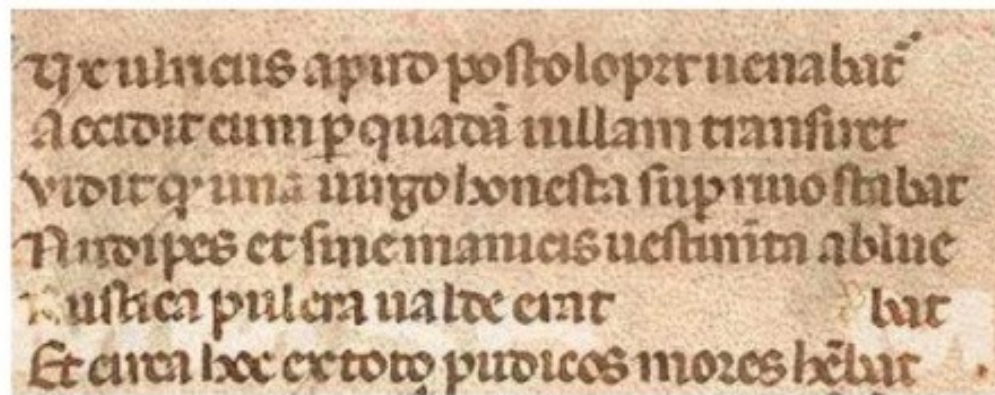 Dx ulricus apud postoloprt uenabat̄
Accidit cum ꝑ quadā uillam transiret
Vidit qͥ una uirgo honesta suꝑ riuo stabat
Nudipes et sine manicis uestim̄ta ablue
Rustica pulcra ualde erat bat
Et circa hoc ex toto pudicos mores hēbat